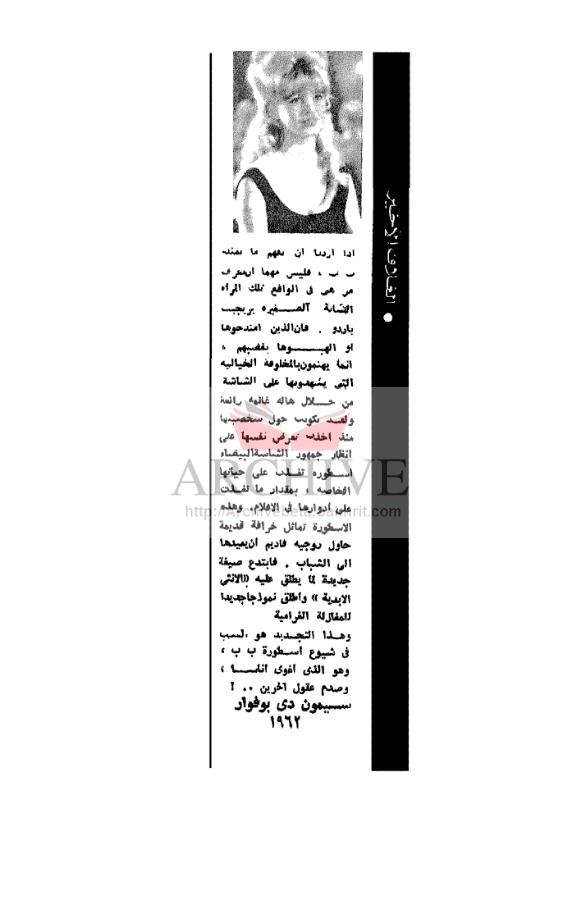 الغلاف الأخير
اذا أردنا ان نفهم ما تمثله
ب ب ، فليس مهما ان نعرف
من هى فى الواقع تلك المرأة
الشابة الصغيرة بريجيت
باردو . فان الذين امتدحوها
او الهبوها بغضبهم ،
انما يهتمون بالمخلوقة الخيالية
التى يشهدونها على الشاشة
من خلال هالة
ولقد تكونت حول شخصيتها
منذ اخذت تعرض نفسها على
انظار جمهور الشاشة البيضاء
اسطورة تغلب على حياتها
الخاصة ، بمقدار ما تغلبت
على أدوارها فى الافلام. وهذه
الاسطورة تماثل خرافة قديمة
حاول روجيه فاديم ان يعيدها
الى الشباب . فابتدع صيغة
جديدة لما يطلق عليه «الانثى
الابدية » وأطلق نموذجا جديدا
للمغازلة الغرامية
وهذا التجديد هو السبب
فى شيوع اسطورة ب ب ،
وهو الذى أغوى أناسا ،
وصدم عقول آخرين .. !
سيمون دى بوفوار
١٩٦٢
ARCHIVE
http://Archivebeta.Sakhrit.com